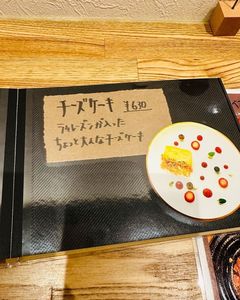 チーズケーキ ¥630
ラムレーズンが入った
ちょっと大人なチーズケーキ